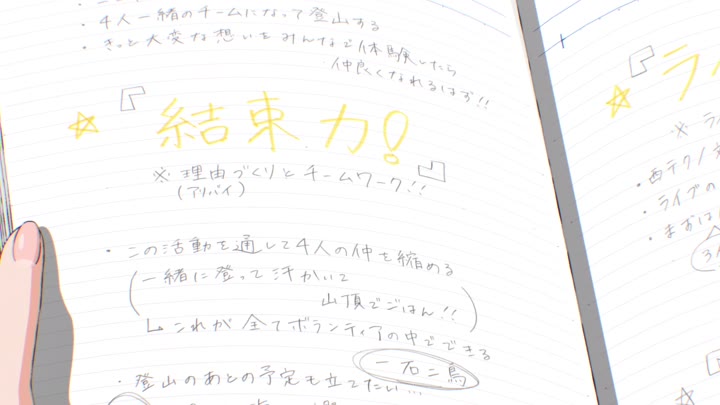 ・4人一緒のチームになって登山する
・きっと大変な想いをみんなで体験したら
仲良くなれるはず!!
☆『結束力!』
※理由づくりとチームワーク!!
(アリバイ)
・この活動を通して4人の仲を縮める
(一緒に登って汗かいて
山頂でごはん!!)
↳これが全てボランティアの中でできる
一石二鳥
・登山のあとの予定も立てたい…
☆『ラ
※ラ
・西テクノ
・ライブの
・まおは